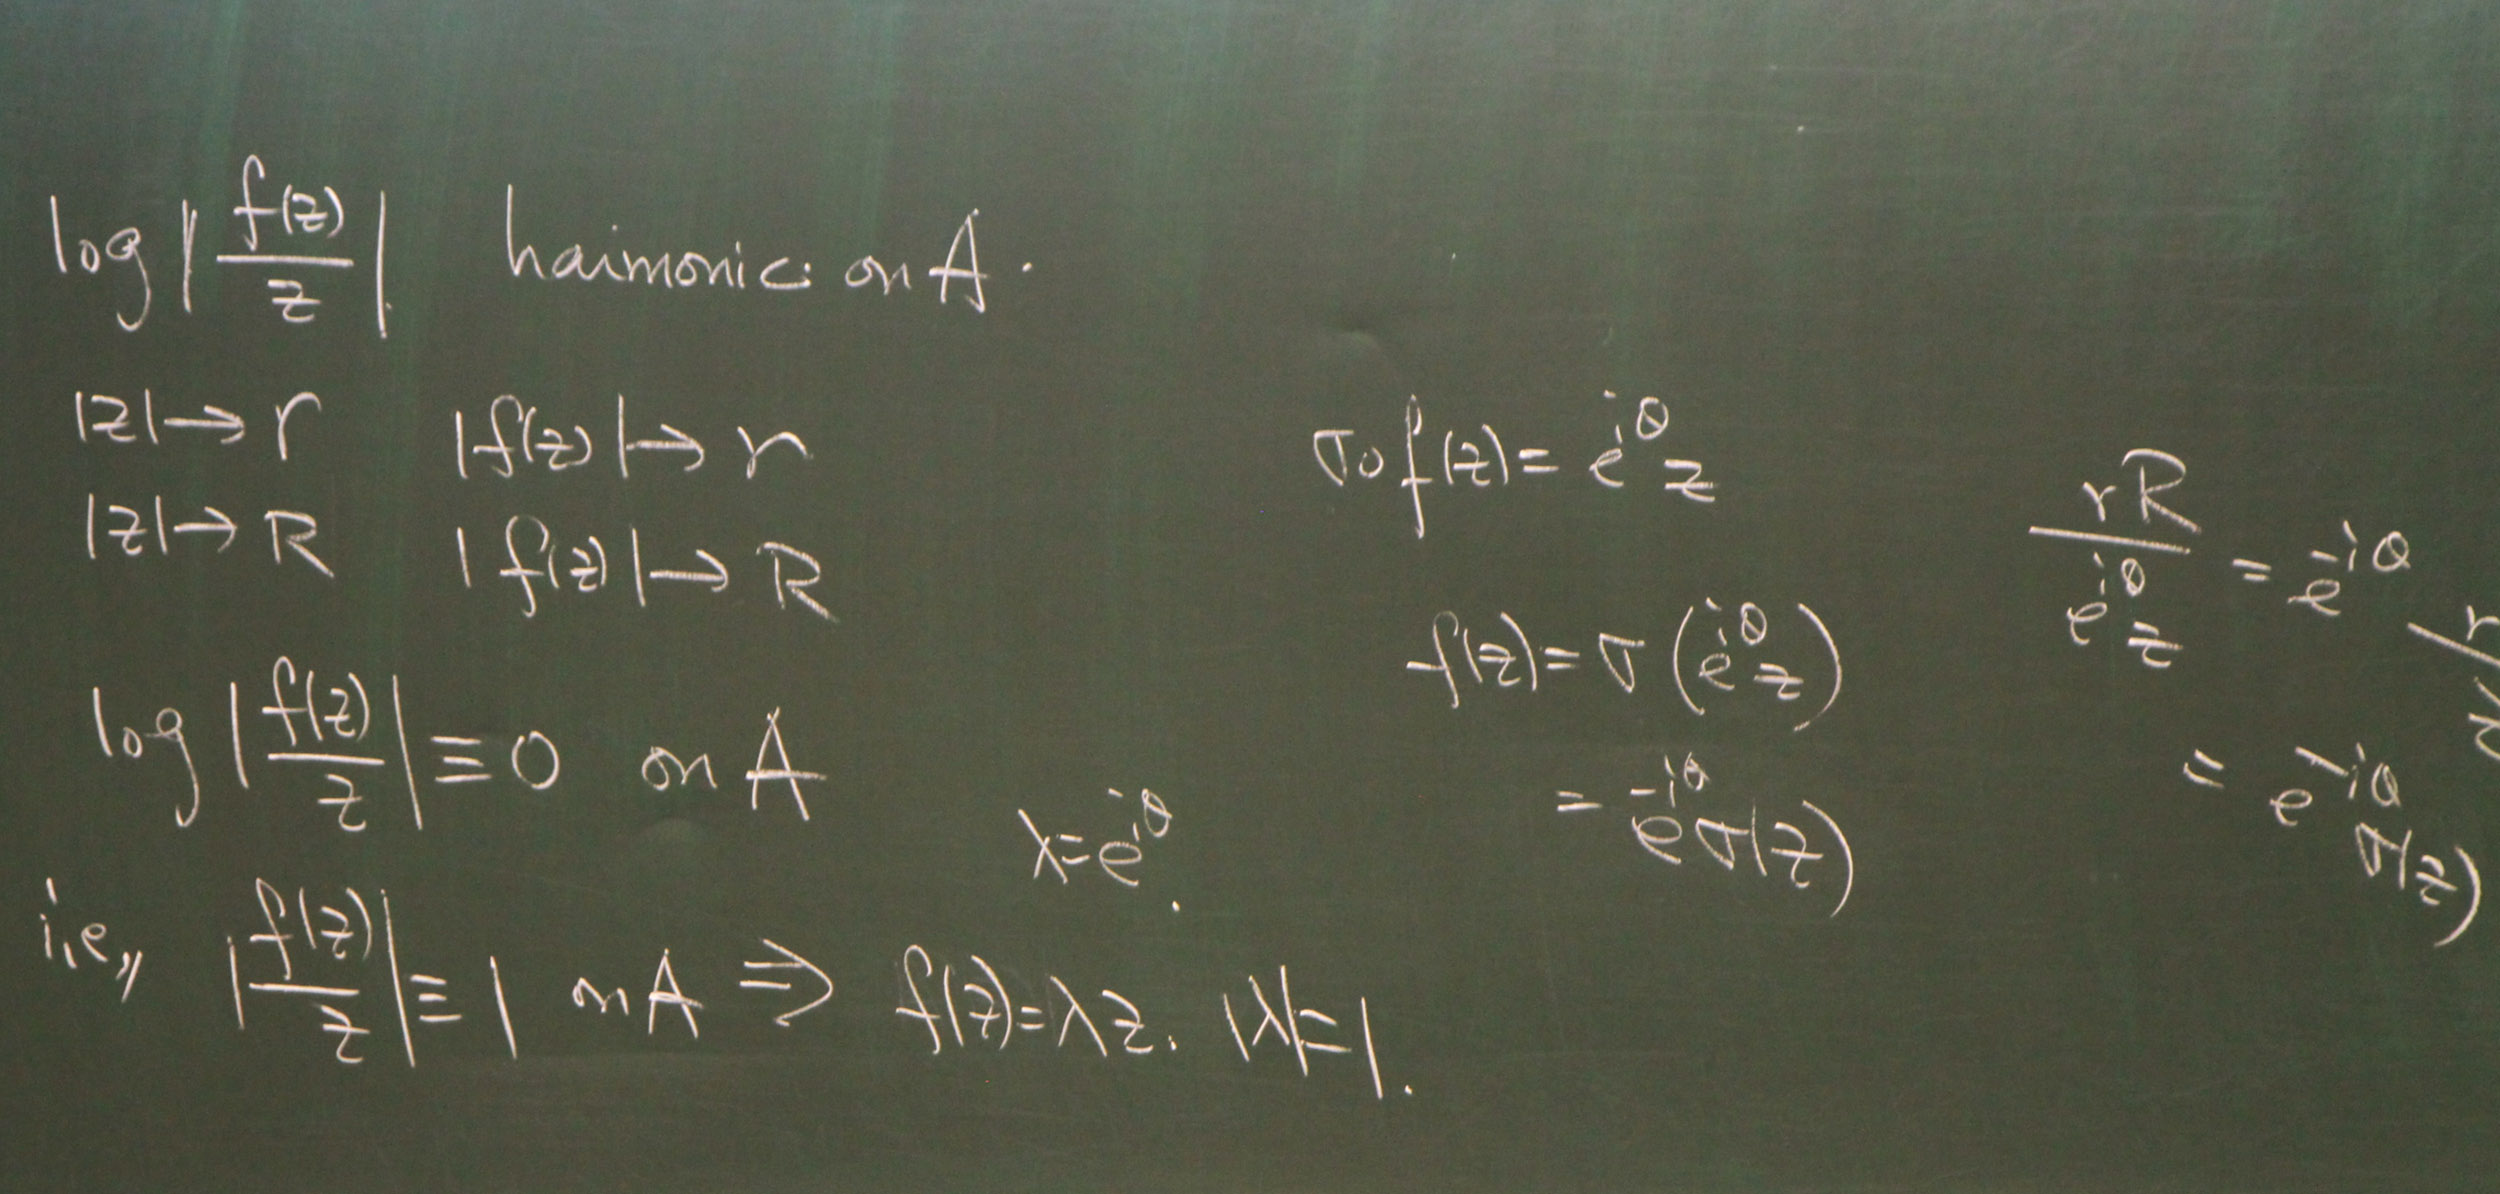 log |f(z)/z| harmonic on A.
|z| → r   |f(z)| → r
|z| → R   |f(z)| → R
log |f(z)/z| ≡ 0 on A
λ = e^{iθ}.
i.e., |f(z)/z| ≡ 1 on A ⇒ f(z) = λz. |λ| = 1.
σ∘f(z) = e^{iθ} z
f(z) = σ(e^{iθ} z)
= e^{-iθ} σ(z)
rR/(e^{iθ} z) = e^{-iθ} r/z
= e^{-iθ} σ(z)